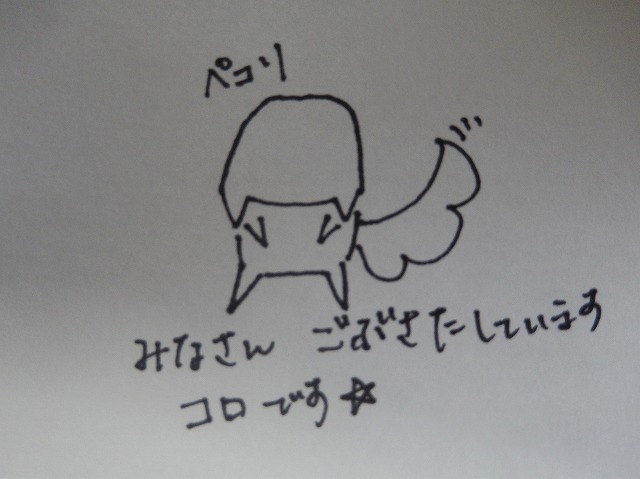 ペコリ
みなさん ごぶさたしています
コロです☆